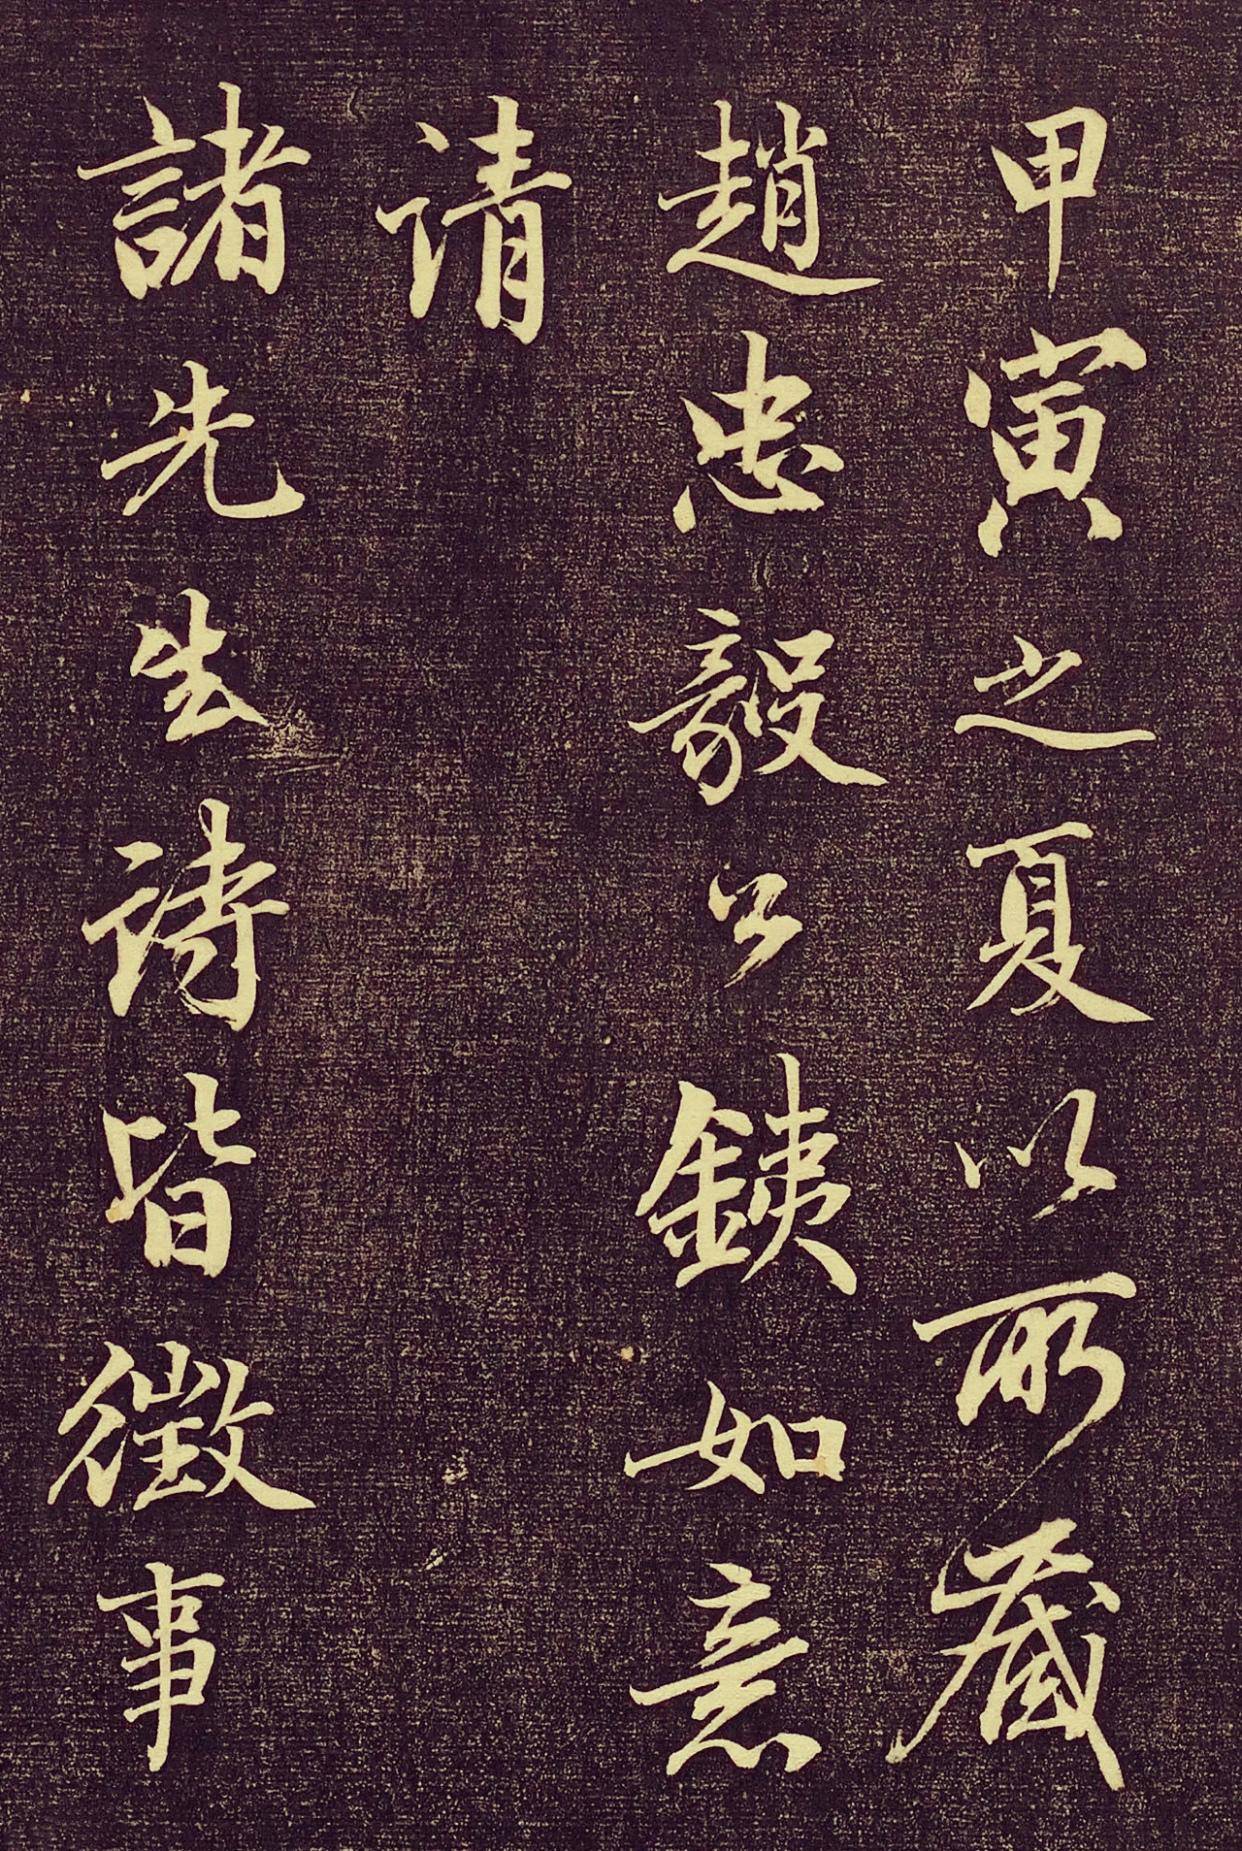 甲寅之夏以所藏
趙忠毅公銕如意
請
諸先生詩皆徵事